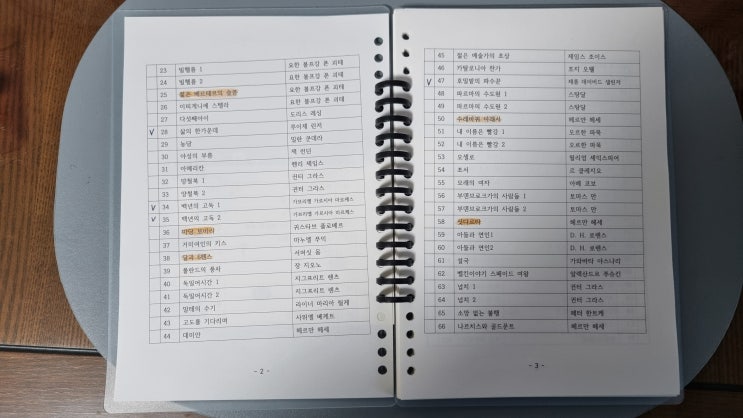 23 빌헬름 1 요한 볼프강 폰 괴테
24 빌헬름 2 요한 볼프강 폰 괴테
25 젊은 베르테르의 슬픔 요한 볼프강 폰 괴테
26 이피게니에 스텔라 요한 볼프강 폰 괴테
27 다섯째아이 도리스 레싱
∨ 28 삶의 한가운데 루이제 린저
29 농담 밀란 쿤데라
30 야성의 부름 잭 런던
31 아메리칸 헨리 제임스
32 양철북 1 귄터 그라스
33 양철북 2 귄터 그라스
∨ 34 백년의 고독 1 가브리엘 가르시아 마르케스
∨ 35 백년의 고독 2 가브리엘 가르시아 마르케스
36 마담 보바리 귀스타브 플로베르
37 거미여인의 키스 마누엘 푸익
38 달과 6펜스 서머싯 몸
39 폴란드의 풍차 장 지오노
40 독일어시간 1 지그프리트 렌츠
41 독일어시간 2 지그프리트 렌츠
42 말테의 수기 라이너 마리아 릴케
43 고도를 기다리며 사뮈엘 베케트
44 데미안 헤르만 헤세
- 2 -
45 젊은 예술가의 초상 제임스 조이스
46 카탈로니아 찬가 조지 오웰
∨ 47 호밀밭의 파수꾼 제롬 데이비드 샐린저
48 파르마의 수도원 1 스탕달
49 파르마의 수도원 2 스탕달
50 수레바퀴 아래서 헤르만 헤세
51 내 이름은 빨강 1 오르한 파묵
52 내 이름은 빨강 2 오르한 파묵
53 오셀로 윌리엄 셰익스피어
54 조서 르 클레지오
55 모래의 여자 아베 코보
56 부덴브로크가의 사람들 1 토마스 만
57 부덴브로크가의 사람들 2 토마스 만
58 싯다르타 헤르만 헤세
59 아들과 연인1 D. H. 로렌스
60 아들과 연인2 D. H. 로렌스
61 설국 가와바타 야스나리
62 벨킨이야기 스페이드 여왕 알렉산드르 푸슈킨
63 넙치 1 귄터 그라스
64 넙치 2 귄터 그라스
65 소망 없는 불행 페터 한트케
66 나르치스와 골드문트 헤르만 헤세
- 3 -